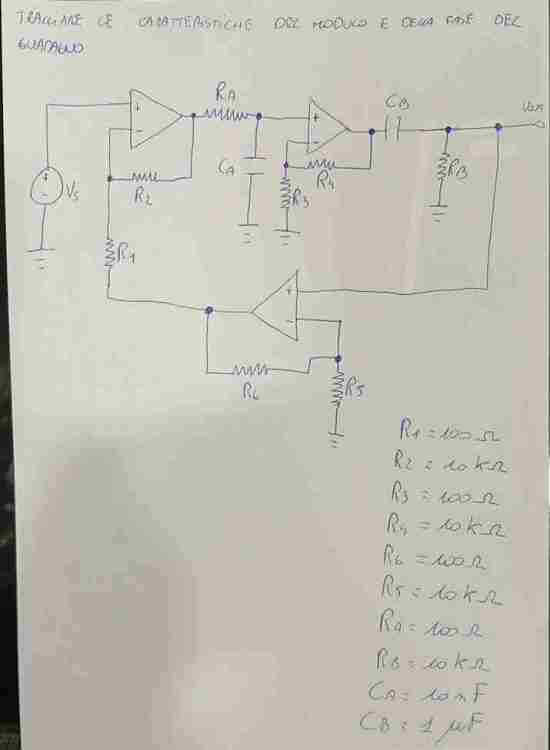 TRACCIARE LE CARATTERISTICHE DEL MODULO E DELLA FASE DEL
GUADAGNO
RA
CB
Vout
+
+
-
-
CA
R4
RB
+
-
Vs
R2
R3
R1
+
-
R6
R5
R1 = 100 Ω
R2 = 10 KΩ
R3 = 100 Ω
R4 = 10K Ω
R6 = 100 Ω
R5 = 10K Ω
RA = 100 Ω
RB = 10K Ω
CA = 10 nF
CB = 1 μF